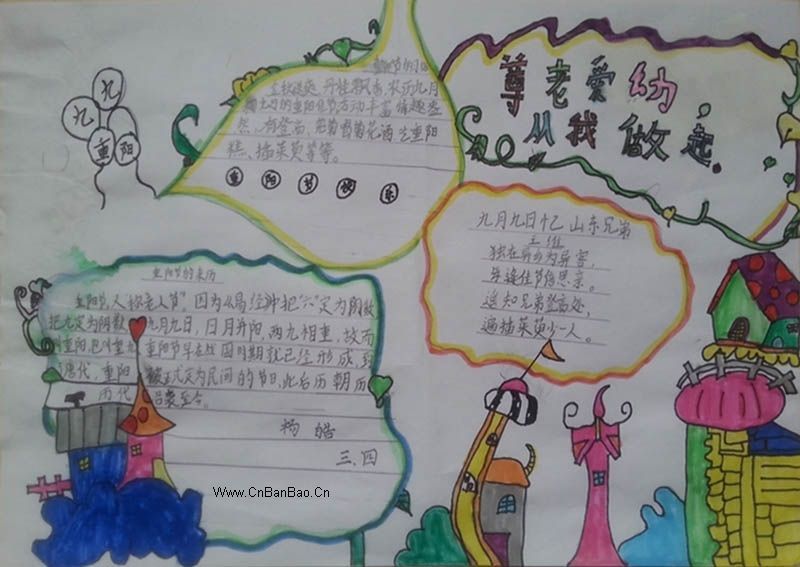 九
九
重
阳
尊老爱幼,
从我做起.
金秋送爽,丹桂飘香,农历九月
九日的重阳佳节活动丰富,情趣盎
然,有登高、赏菊、喝菊花酒、吃重阳
糕、插茱萸等等。
重阳节快乐
九月九日忆山东兄弟
王维
独在异乡为异客,
每逢佳节倍思亲。
遥知兄弟登高处,
遍插茱萸少一人。
重阳节的来历
重阳节,又称老人节”。因为《易经》中把“六”定为阴数
把九定为阳数 九月九日,日月并阳,两九相重,故而
重阳 重阳节早在战国时期就已经形成,到
唐代,重阳 正式定为民间的节日,此后历朝历
代
杨皓
三.四
Www.CnBanBao.Cn